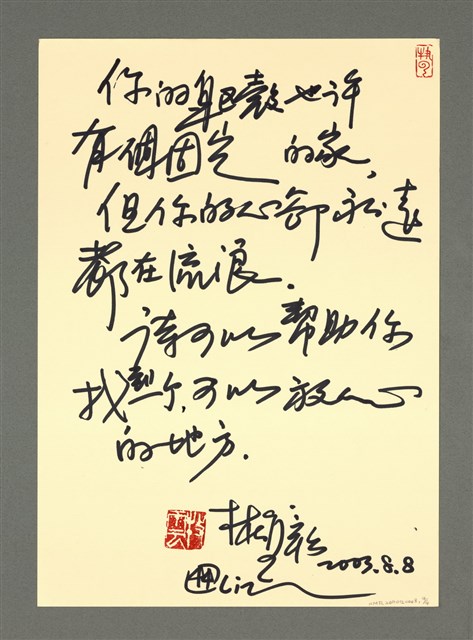 你的軀殼也许
有個固定 的家,
但你的心卻永遠
都在流浪.
诗可以幫助你
找到一个,可以放心
的地方.
2003.8.8